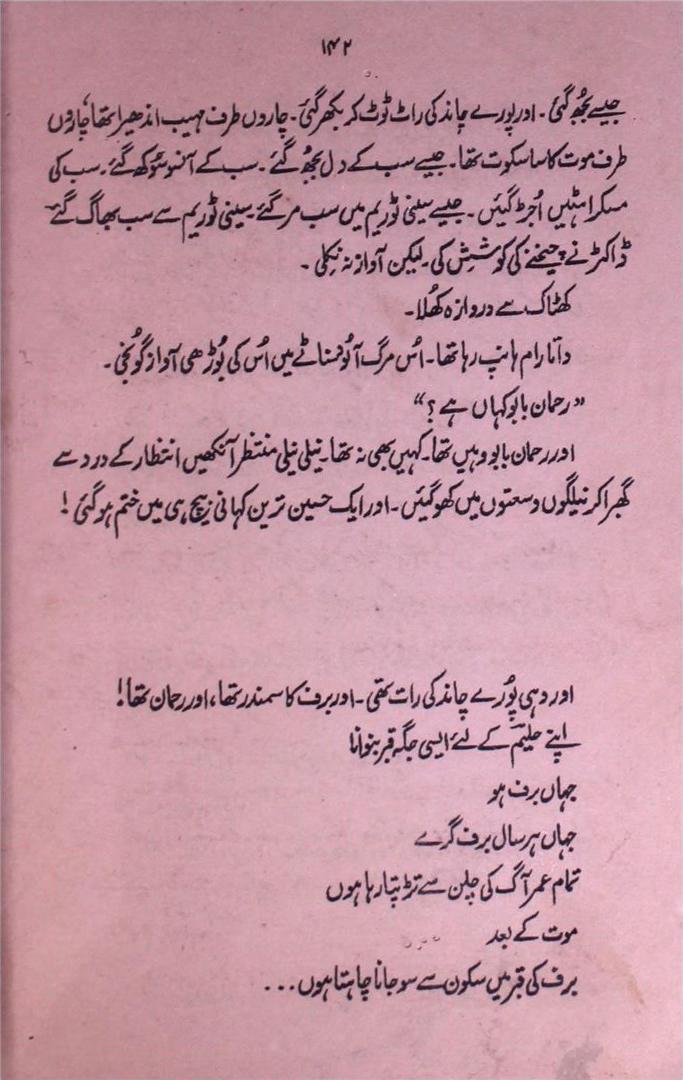 ۱۴۲
جیسے بجھ گئی۔ اور پورے چاند کی رات ٹوٹ کر بکھر گئی۔ چاروں طرف مہیب اندھیرا تھا چاروں
طرف موت کا سا سکوت تھا۔ جیسے سب کے دل بجھ گئے۔ سب کے آنسو سوکھ گئے۔ سب کی
مسکراہٹیں اُجڑ گئیں۔ جیسے سینی ٹوریم میں سب مر گئے۔ سینی ٹوریم سے سب بھاگ گئے
ڈاکٹر نے چیخنے کی کوشش کی۔ لیکن آواز نہ نکلی۔
کھٹاک سے دروازہ کھُلا۔
داتا رام ہانپ رہا تھا۔ اُس مرگ آلود سناٹے میں اُس کی بُوڑھی آواز گونجی۔
”رحمان بابو کہاں ہے؟“
اور رحمان بابو وہیں تھا۔ کہیں بھی نہ تھا۔ نیلی نیلی منتظر آنکھیں انتظار کے درد سے
گھبرا کر نیلگوں وسعتوں میں کھو گئیں۔ اور ایک حسین ترین کہانی بیچ ہی میں ختم ہو گئی!
اور وہی پُورے چاند کی رات تھی۔ اور برف کا سمندر تھا، اور رحمان تھا!
اپنے حلیم کے لئے ایسی جگہ قبر بنوانا
جہاں برف ہو
جہاں ہر سال برف گرے
تمام عمر آگ کی جلن سے تڑپتا رہا ہوں
موت کے بعد
برف کی قبر میں سکون سے سو جانا چاہتا ہوں...